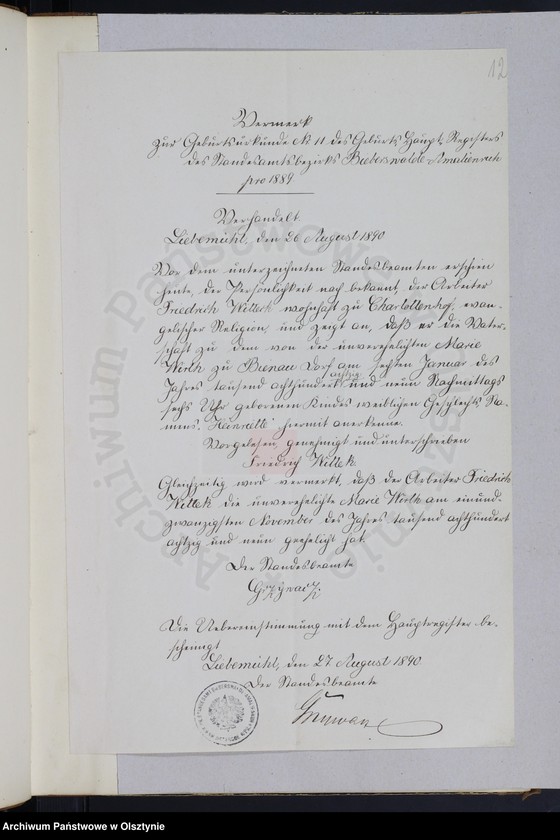 12
Vermerk
zur Geburtsurkunde № 11 des Geburts Haupt Registers
des Standesamtsbezirks Bieberswalde Amalienruh
pro 1889
Verhandelt
Liebemühl, den 26 August 1890
Vor dem unterzeichneten Standesbeamten erschien
heute, der Persönlichkeit nach bekannt, der Arbeiter
Friedrich Kitteck wohnhaft zu Charlottenhof, evan-
gelischer Religion, und zeigt an, daß er die Vater-
schaft zu dem von der unverehelichten Marie
Wirth zu Bienau Dorf am sechsten Januar des
Jahres tausend achthundert achtzig und neun Nachmittags
sechs Uhr geborenen Kindes weiblichen Geschlechts, Na-
mens, Henriette hiermit anerkenne.
Vorgelesen, genehmigt und unterschrieben
Friedrich Kittek
Gleichzeitig wird vermerkt, daß der Arbeiter Friedrich
Kitteck die unverehelichte Marie Wirth am einund-
zwanzigsten November des Jahres tausend achthundert
achtzig und neun geehelicht hat.
Der Standesbeamte
Grzywacz
Die Uebereinstimmung mit dem Hauptregister be-
scheinigt
Liebemühl, den 27 August 1890
Der Standesbeamte
Archiwum Państwowe
w Olsztynie
Archiwum Państwowe w Olsztynie